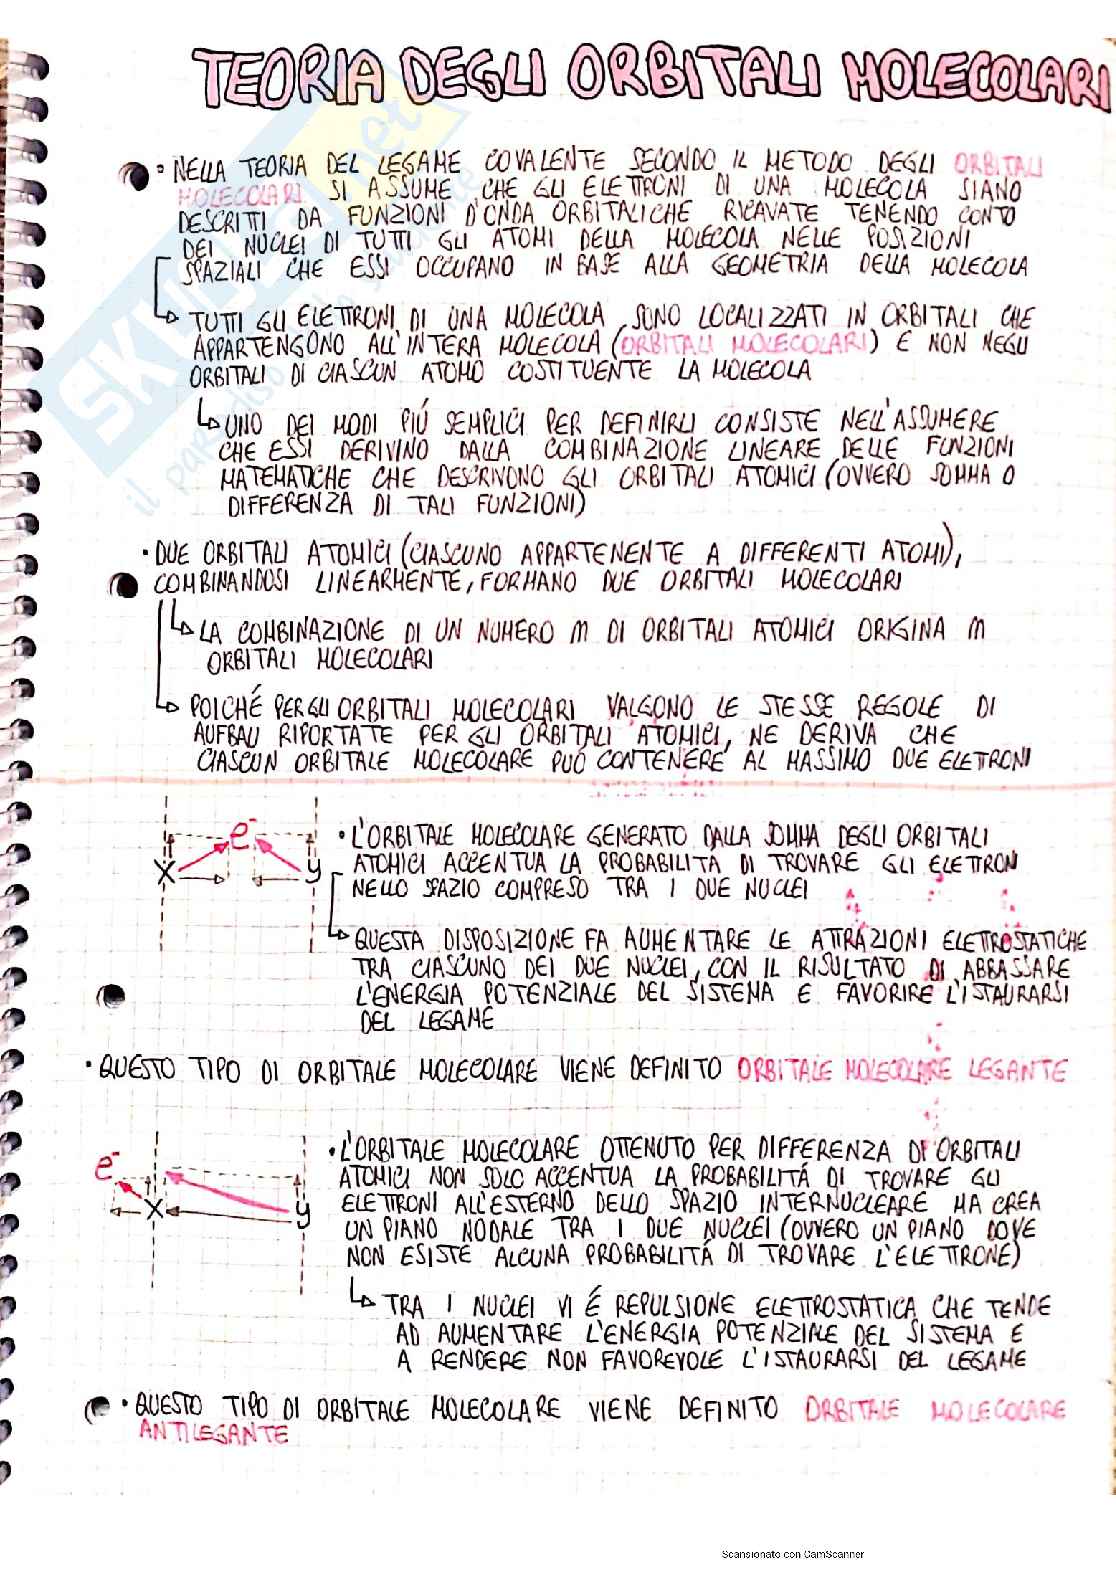 TEORIA DEGLI ORBITALI MOLECOLARI
• NELLA TEORIA DEL LEGAME COVALENTE SECONDO IL METODO DEGLI ORBITALI
MOLECOLARI SI ASSUME CHE GLI ELETTRONI DI UNA MOLECOLA SIANO
DESCRITTI DA FUNZIONI D'ONDA ORBITALICHE RICAVATE TENENDO CONTO
DEI NUCLEI DI TUTTI GLI ATOMI DELLA MOLECOLA NELLE POSIZIONI
SPAZIALI CHE ESSI OCCUPANO IN BASE ALLA GEOMETRIA DELLA MOLECOLA
TUTTI GLI ELETTRONI DI UNA MOLECOLA SONO LOCALIZZATI IN ORBITALI CHE
APPARTENGONO ALL'INTERA MOLECOLA (ORBITALI MOLECOLARI) E NON NEGLI
ORBITALI DI CIASCUN ATOMO COSTITUENTE LA MOLECOLA
UNO DEI MODI PIÚ SEMPLICI PER DEFINIRLI CONSISTE NELL'ASSUMERE
CHE ESSI DERIVINO DALLA COMBINAZIONE LINEARE DELLE FUNZIONI
MATEMATICHE CHE DESCRIVONO GLI ORBITALI ATOMICI (OVVERO SOMMA O
DIFFERENZA DI TALI FUNZIONI)
• DUE ORBITALI ATOMICI (CIASCUNO APPARTENENTE A DIFFERENTI ATOMI),
COMBINANDOSI LINEARMENTE, FORMANO DUE ORBITALI MOLECOLARI
LA COMBINAZIONE DI UN NUMERO M DI ORBITALI ATOMICI ORIGINA M
ORBITALI MOLECOLARI
POICHÉ PER GLI ORBITALI MOLECOLARI VALGONO LE STESSE REGOLE DI
AUFBAU RIPORTATE PER GLI ORBITALI ATOMICI, NE DERIVA CHE
CIASCUN ORBITALE MOLECOLARE PUÓ CONTENERE AL MASSIMO DUE ELETTRONI
e-
X y
• L'ORBITALE MOLECOLARE GENERATO DALLA SOMMA DEGLI ORBITALI
ATOMICI ACCENTUA LA PROBABILITÁ DI TROVARE GLI ELETTRON
NELLO SPAZIO COMPRESO TRA I DUE NUCLEI
QUESTA DISPOSIZIONE FA AUMENTARE LE ATTRAZIONI ELETTROSTATICHE
TRA CIASCUNO DEI DUE NUCLEI, CON IL RISULTATO DI ABBASSARE
L'ENERGIA POTENZIALE DEL SISTEMA E FAVORIRE L'ISTAURARSI
DEL LEGAME
• QUESTO TIPO DI ORBITALE MOLECOLARE VIENE DEFINITO ORBITALE MOLECOLARE LEGANTE
e-
X y
• L'ORBITALE MOLECOLARE OTTENUTO PER DIFFERENZA DI ORBITALI
ATOMICI NON SOLO ACCENTUA LA PROBABILITÁ DI TROVARE GLI
ELETTRONI ALL'ESTERNO DELLO SPAZIO INTERNUCLEARE MA CREA
UN PIANO NODALE TRA I DUE NUCLEI (OVVERO UN PIANO DOVE
NON ESISTE ALCUNA PROBABILITÁ DI TROVARE L'ELETTRONE)
TRA I NUCLEI VI É REPULSIONE ELETTROSTATICA CHE TENDE
AD AUMENTARE L'ENERGIA POTENZIALE DEL SISTEMA E
A RENDERE NON FAVOREVOLE L'ISTAURARSI DEL LEGAME
• QUESTO TIPO DI ORBITALE MOLECOLARE VIENE DEFINITO ORBITALE MOLECOLARE
ANTILEGANTE
Scansionato con CamScanner